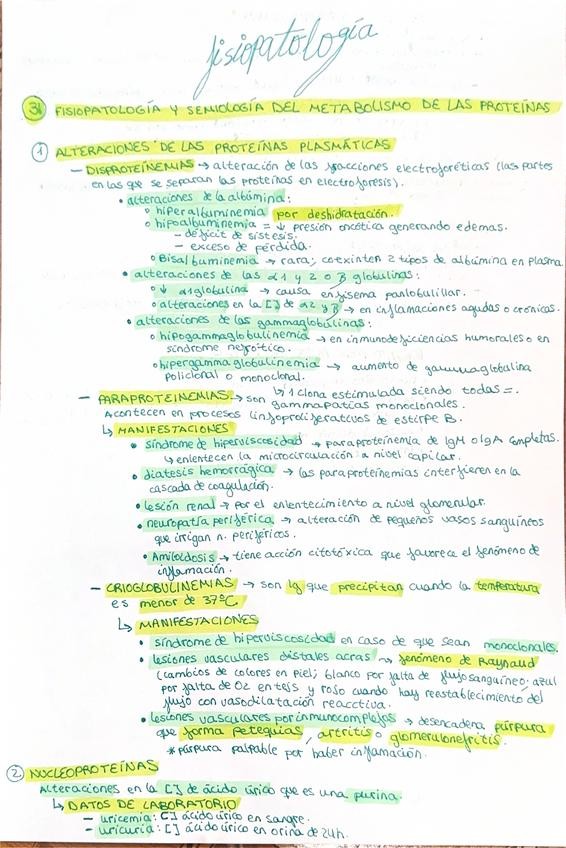 fisiopatología
31 FISIOPATOLOGÍA Y SEMIOLOGÍA DEL METABOLISMO DE LAS PROTEÍNAS
1 ALTERACIONES DE LAS PROTEÍNAS PLASMÁTICAS
- DISPROTEINEMIAS → alteración de las fracciones electroforéticas (las partes
en las que se separan las proteínas en electroforesis).
• alteraciones de la albúmina:
° hiperalbuminemia por deshidratación.
° hipoalbuminemia = ↓ presión oncótica generando edemas.
- déficit de síntesis.
- exceso de pérdida.
° Bisalbuminemia → rara; coexisten 2 tipos de albúmina en plasma.
• alteraciones de las α1 y 2 o β globulinas:
° ↓ α1globulina → causa enfisema panlobulillar.
° alteraciones en la [] de α2 y β → en inflamaciones agudas o crónicas.
• alteraciones de las gammaglobulinas:
° hipogammaglobulinemia → en inmunodeficiencias humorales o en
síndrome nefrótico.
° hipergammaglobulinemia → aumento de gammaglobulina
policlonal o monoclonal.
↳ 1 clona estimulada siendo todas =.
- PARAPROTEINEMIAS → son gammapatías monoclonales.
Acontecen en procesos linfoproliferativos de estirpe B.
↳ MANIFESTACIONES
• síndrome de hiperviscosidad → paraproteinemia de IgM o IgA completas.
↳ enlentecen la microcirculación a nivel capilar.
• diátesis hemorrágica → las paraproteinemias interfieren en la
cascada de coagulación.
• lesión renal → por el enlentecimiento a nivel glomerular.
• neuropatía periférica → alteración de pequeños vasos sanguíneos
que irrigan n. periféricos.
• Amiloidosis → tiene acción citotóxica que favorece el fenómeno de
inflamación.
- CRIOGLOBULINEMIAS → son Ig que precipitan cuando la temperatura
es menor de 37ºC.
↳ MANIFESTACIONES
• síndrome de hiperviscosidad en caso de que sean monoclonales.
• lesiones vasculares distales acras → fenómeno de Raynaud
(cambios de colores en piel; blanco por falta de flujo sanguíneo; azul
por falta de O2 en tejs y rojo cuando hay reestablecimiento del
flujo con vasodilatación reacctiva.
• lesiones vasculares por inmunocomplejos → desencadena púrpura
que forma petequias, artritis o glomerulonefritis.
* púrpura palpable por haber inflamación.
2 NUCLEOPROTEÍNAS
Alteraciones en la [] de ácido úrico que es una purina.
↳ DATOS DE LABORATORIO
- uricemia: [] ácido úrico en sangre.
- uricuria: [] ácido úrico en orina de 24h.